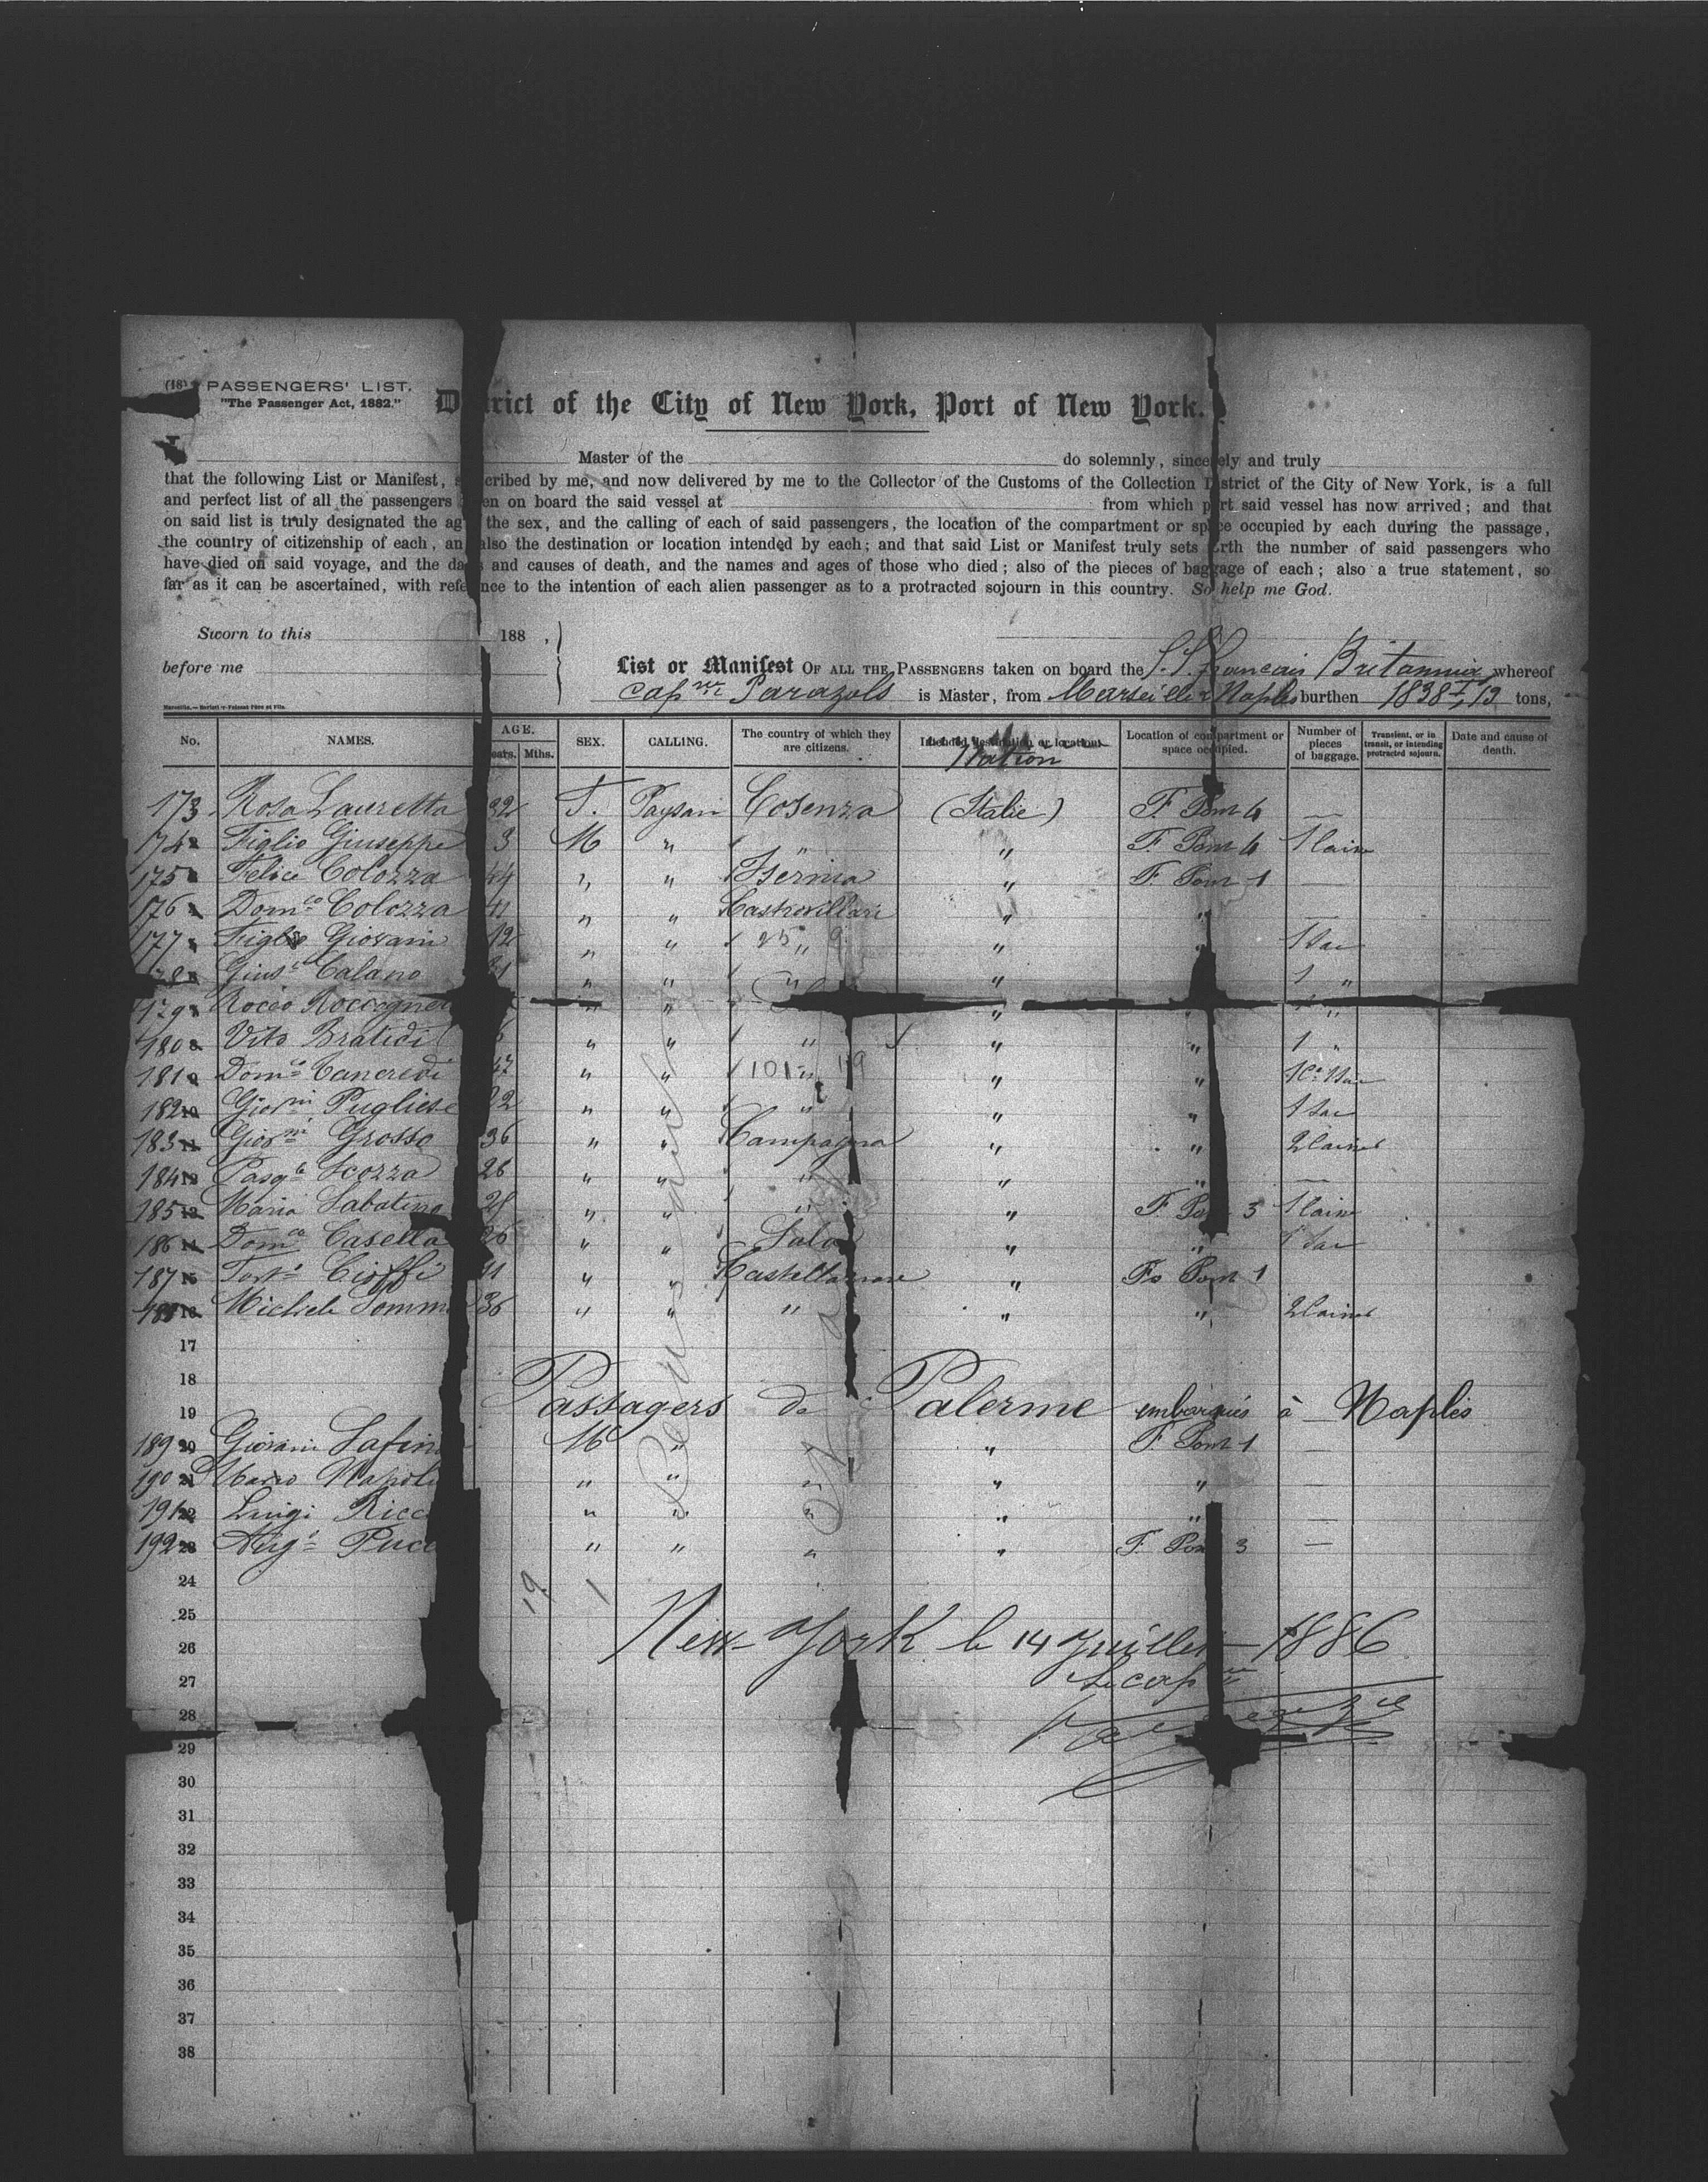 (18) PASSENGERS' LIST.
"The Passenger Act, 1882."
D rict of the City of New York, Port of New York.
I Master of the do solemnly, sincerely and truly
that the following List or Manifest, s cribed by me, and now delivered by me to the Collector of the Customs of the Collection District of the City of New York, is a full
and perfect list of all the passengers en on board the said vessel at from which port said vessel has now arrived; and that
on said list is truly designated the ag the sex, and the calling of each of said passengers, the location of the compartment or space occupied by each during the passage,
the country of citizenship of each, an also the destination or location intended by each; and that said List or Manifest truly sets forth the number of said passengers who
have died on said voyage, and the da s and causes of death, and the names and ages of those who died; also of the pieces of baggage of each; also a true statement, so
far as it can be ascertained, with refe nce to the intention of each alien passenger as to a protracted sojourn in this country. So help me God.
Sworn to this 188 ,
before me
List or Manifest OF ALL THE PASSENGERS taken on board the S.S. français Britannia whereof
capne Parazols is Master, from Marseille & Naples burthen 1838 Tx 13 tons,
No. NAMES. AGE. ears. Mths. SEX. CALLING. The country of which they are citizens. Intended destination or location. Nation Location of compartment or space occupied. Number of pieces of baggage. Transient, or in transit, or intending protracted sojourn. Date and cause of death.
173 Rosa Lauretta 32 F. Paysan Cosenza (Italie) F. Pont 4 —
174 Figlio Giuseppe 3 M " " " F. Pont 4
175 Felice Colozza 44 " " Isernia " F. Pont 1 —
176 Domco Colozza 41 " " Castrovillari " " —
177 Figlio Giovani 12 " " 25 " 9 " " 1 Sac
Calano " " " " 1 "
179 Rocco " " " " "
180 Vito " " " " " 1 "
181 Domco Tancredi 47 " " 101 " 19 " "
182 10 Giovni Pugliese 22 " " " " " 1 Sac
183 11 Giovni Grosso 36 " " Campagna " "
184 12 Pasqle Scozza 26 " " " " " —
185 13 Maria Sabatino 28 " " " " F. Po 3
186 14 Domco Casella 26 " " Sala " " 1 Sac
187 15 Cioffi " " Castellamare " Fo Pont 1
16 Michele Somm 36 " " " " "
17
18
19 Passagers de Palerme embarqués à Naples
189 20 Giovani Safin M " " F. Pont 1 —
190 21 Marco Napoli " " " " " —
191 22 Luigi Ricc " " " " " —
192 23 Augo Pucc " " " " F. Pon 3 —
24 19 1
25
26 New-York le 14 Juillet 1886
27 Le capne
28
29
30
31
32
33
34
35
36
37
38